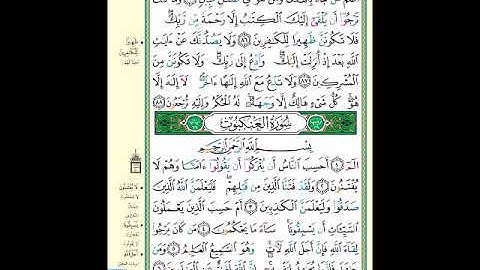 تَرْجُوٓا۟ أَن يُلْقَىٰٓ إِلَيْكَ ٱلْكِتَٰبُ إِلَّا رَحْمَةً مِّن رَّبِّكَ
فَلَا تَكُونَنَّ ظَهِيرًا لِّلْكَٰفِرِينَ ٨٦ وَلَا يَصُدُّنَّكَ عَنْ ءَايَٰتِ
ٱللَّهِ بَعْدَ إِذْ أُنزِلَتْ إِلَيْكَ وَٱدْعُ إِلَىٰ رَبِّكَ وَلَا تَكُونَنَّ مِنَ
ٱلْمُشْرِكِينَ ٨٧ وَلَا تَدْعُ مَعَ ٱللَّهِ إِلَٰهًا ءَاخَرَ لَآ إِلَٰهَ إِلَّا
هُوَ كُلُّ شَىْءٍ هَالِكٌ إِلَّا وَجْهَهُۥ لَهُ ٱلْحُكْمُ وَإِلَيْهِ تُرْجَعُونَ ٨٨
سُورَةُ العَنكَبُوتِ
بِسْمِ ٱللَّهِ ٱلرَّحْمَٰنِ ٱلرَّحِيمِ
الٓمٓ ١ أَحَسِبَ ٱلنَّاسُ أَن يُتْرَكُوٓا۟ أَن يَقُولُوٓا۟ ءَامَنَّا وَهُمْ لَا
يُفْتَنُونَ ٢ وَلَقَدْ فَتَنَّا ٱلَّذِينَ مِن قَبْلِهِمْ فَلَيَعْلَمَنَّ ٱللَّهُ ٱلَّذِينَ
صَدَقُوا۟ وَلَيَعْلَمَنَّ ٱلْكَٰذِبِينَ ٣ أَمْ حَسِبَ ٱلَّذِينَ يَعْمَلُونَ
ٱلسَّيِّـَٔاتِ أَن يَسْبِقُونَا سَآءَ مَا يَحْكُمُونَ ٤ مَن كَانَ يَرْجُوا۟
لِقَآءَ ٱللَّهِ فَإِنَّ أَجَلَ ٱللَّهِ لَـَٔاتٍ وَهُوَ ٱلسَّمِيعُ ٱلْعَلِيمُ ٥ وَمَن